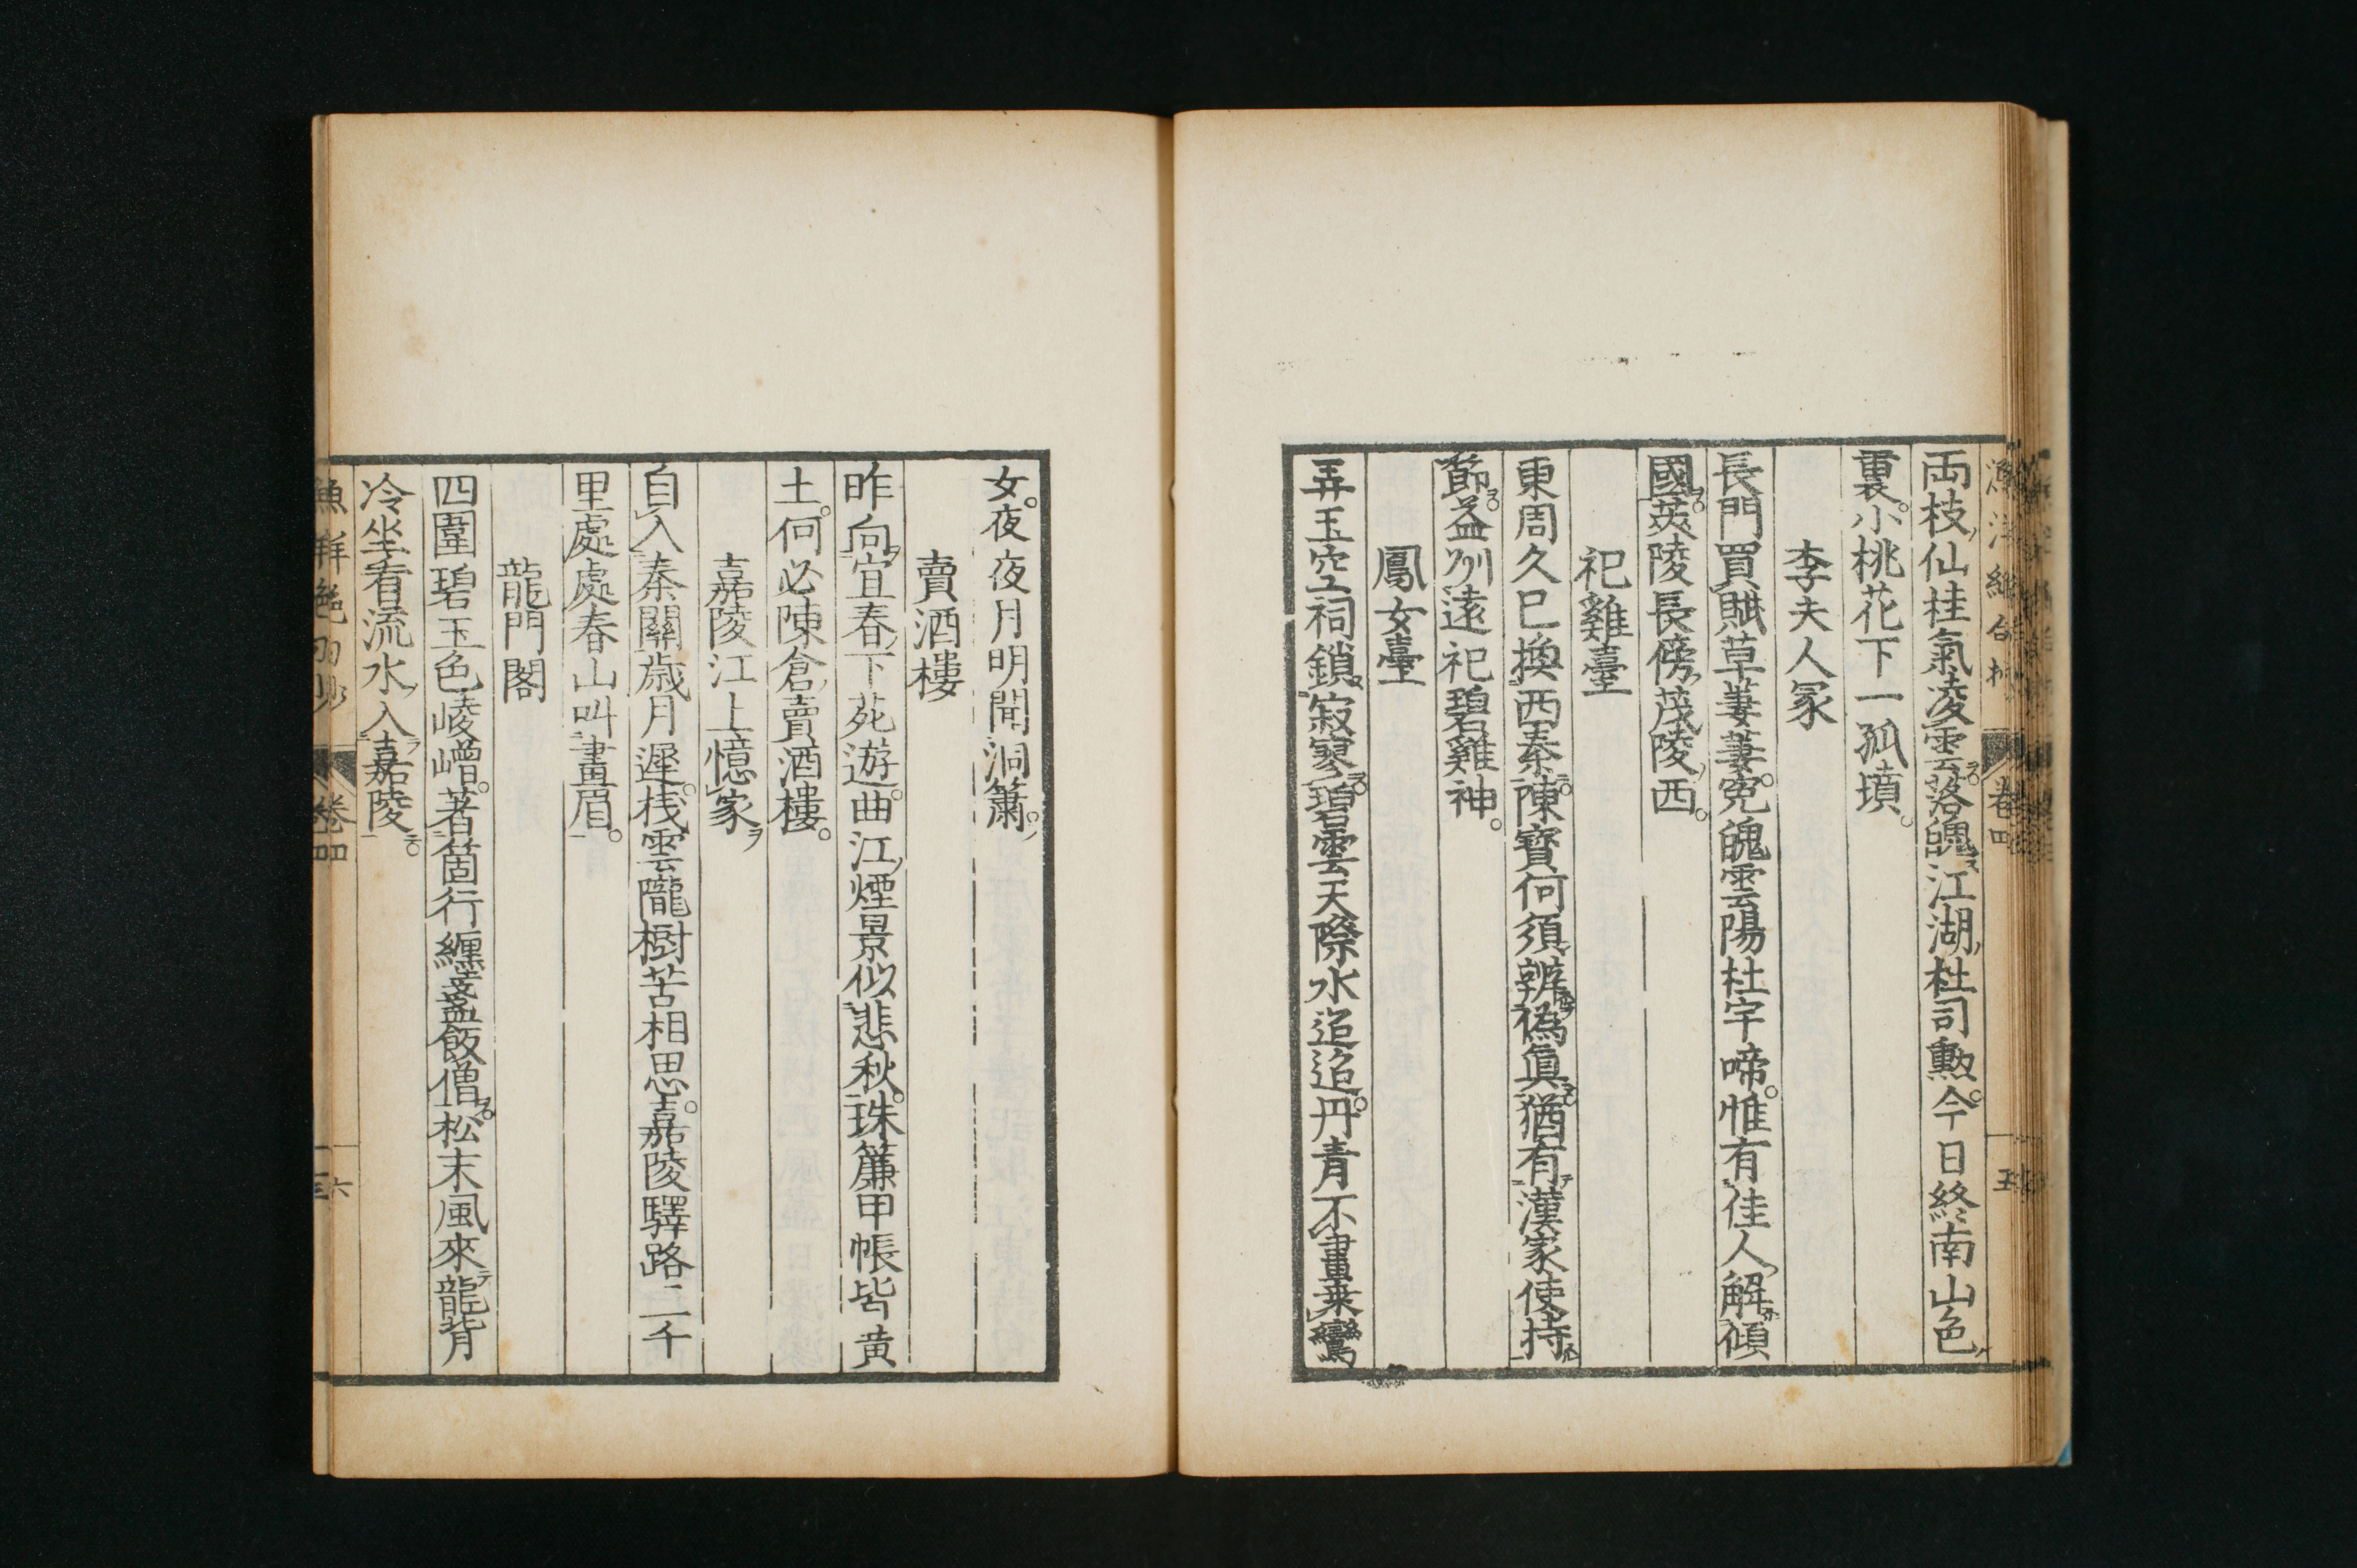 両枝仙桂氣凌雲落魄江湖杜司勲今日終南山色
裏小桃花下一孤墳
李夫人冢
長門買賦草萋萋寃魄雲陽杜宇啼惟有佳人解傾
國英陵長傍茂陵西
祀雞臺
東周久已換西秦陳寶何須辨偽眞猶有漢家使持
節益州遠祀碧雞神
鳳女臺
弄玉空祠鎖寂寥碧雲天際水迢迢丹青不畫乘鸞
卷四
五
女夜夜月明聞洞簫
賣酒樓
昨向宜春下苑遊曲江煙景似悲秋珠簾甲帳皆黃
土何必陳倉賣酒樓
嘉陵江上憶家
自入秦關歳月遲棧雲隴樹苦相思嘉陵驛路二千
里處處春山叫畫眉
龍門閣
四圍碧玉色崚嶒著箇行纏蔆飯僧松末風來龍背
冷坐看流水入嘉陵
卷四
六